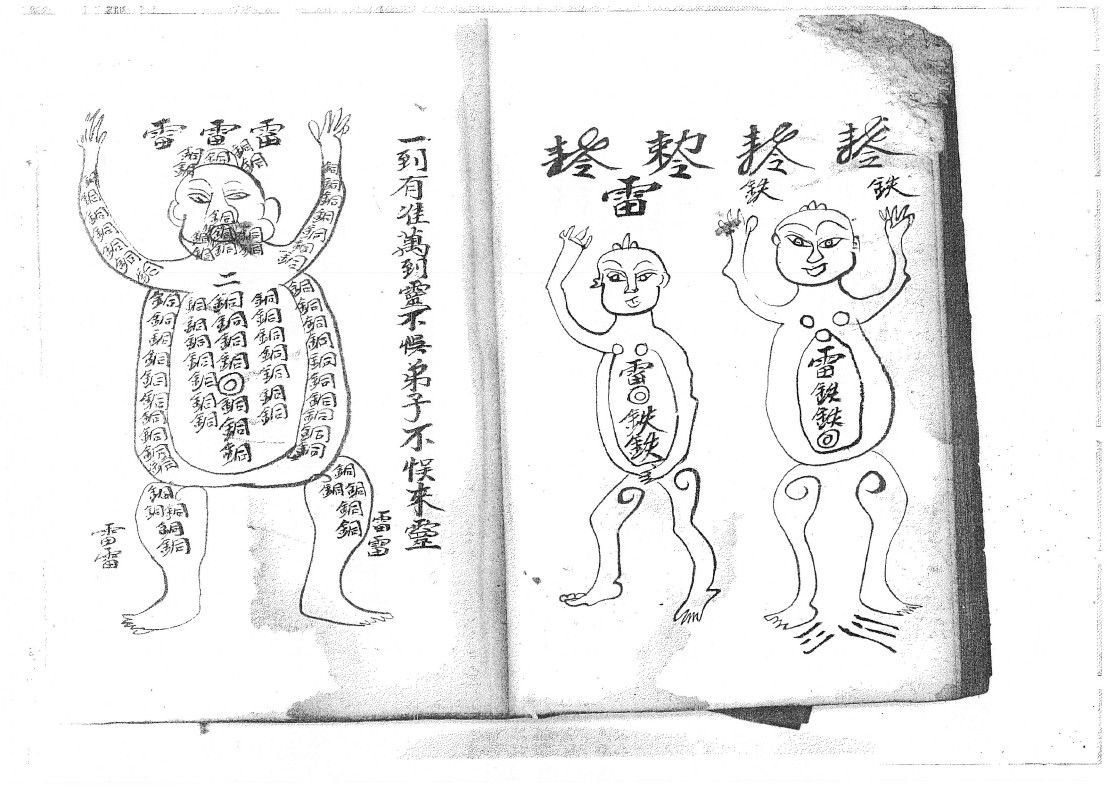 鉄
鉄
雷
鉄
鉄
雷
雷
鉄
鉄
一到有准萬到靈不悞弟子不悞來靈
雷雷雷
銅銅銅
銅銅
銅銅銅銅銅銅銅
銅銅銅銅銅銅銅
銅
銅銅銅
銅銅
二
銅銅銅銅銅銅銅銅銅銅
銅銅銅銅銅銅銅
銅銅銅銅
銅銅銅
銅銅銅銅銅銅銅
銅銅銅銅銅銅銅銅銅
銅
銅銅
銅
銅
雷雷
銅
銅銅
銅
銅
雷雷